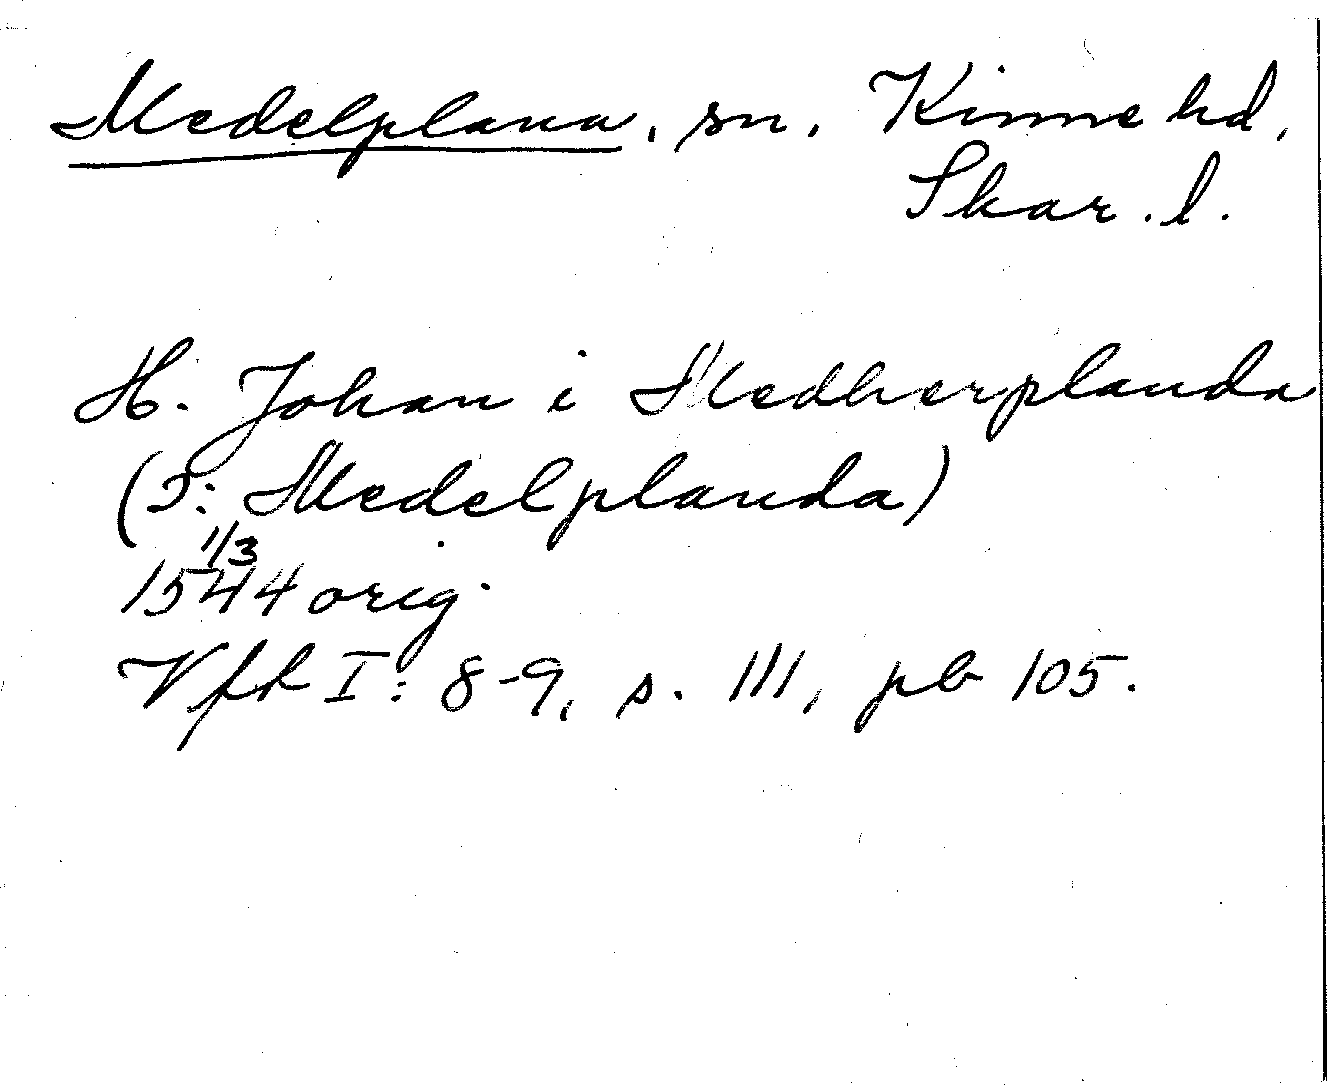 Medelplana, sn, Kinne hd,
Skar. l.
H. Johan i Medherplanda
(ɔ: Medelplanda)
1/3
1544 orig.
Vfh I: 8-9, s. 111, pb 105.